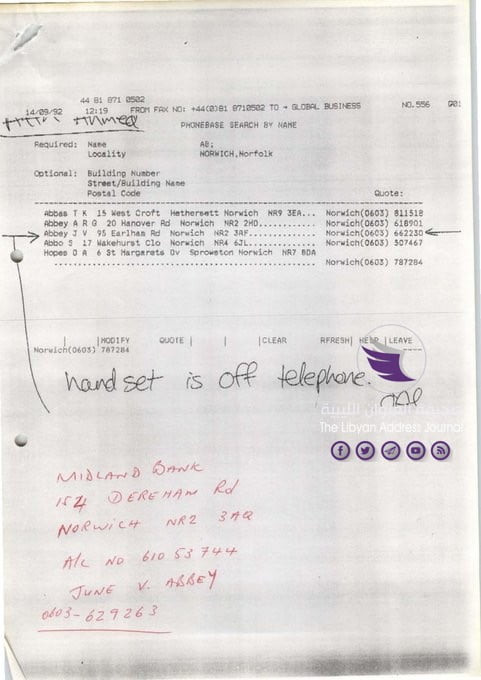 44 81 871 0502
14/09/92 12:19 FROM FAX NO: +44(0)81 8710502 TO → GLOBAL BUSINESS NO.556 001
Ahmed
PHONEBASE SEARCH BY NAME
Required: Name AB;
Locality NORWICH,Norfolk
Optional: Building Number
Street/Building Name
Postal Code Quote:
Abbas T K 15 West Croft Hethersett Norwich NR9 3EA... Norwich(0603) 811518
Abbey A R G 20 Hanover Rd Norwich NR2 2HD............ Norwich(0603) 618901
Abbey J V 95 Earlham Rd Norwich NR2 3RF.............. Norwich(0603) 662230
Abbo S 17 Wakehurst Clo Norwich NR4 6JL.............. Norwich(0603) 507467
Hopes D A 6 St Margarets Dv Sprowston Norwich NR7 8DA
Norwich(0603) 787284
|MODIFY QUOTE| | |CLEAR RFRESH| HELP |LEAVE
Norwich(0603) 787284
handset is off telephone.
صحيفة العنوان الليبية
The Libyan Address Journal
MIDLAND BANK
154 DEREHAM Rd
NORWICH NR2 3AQ
A/C NO 610 53 744
JUNE V. ABBEY
0603-629263